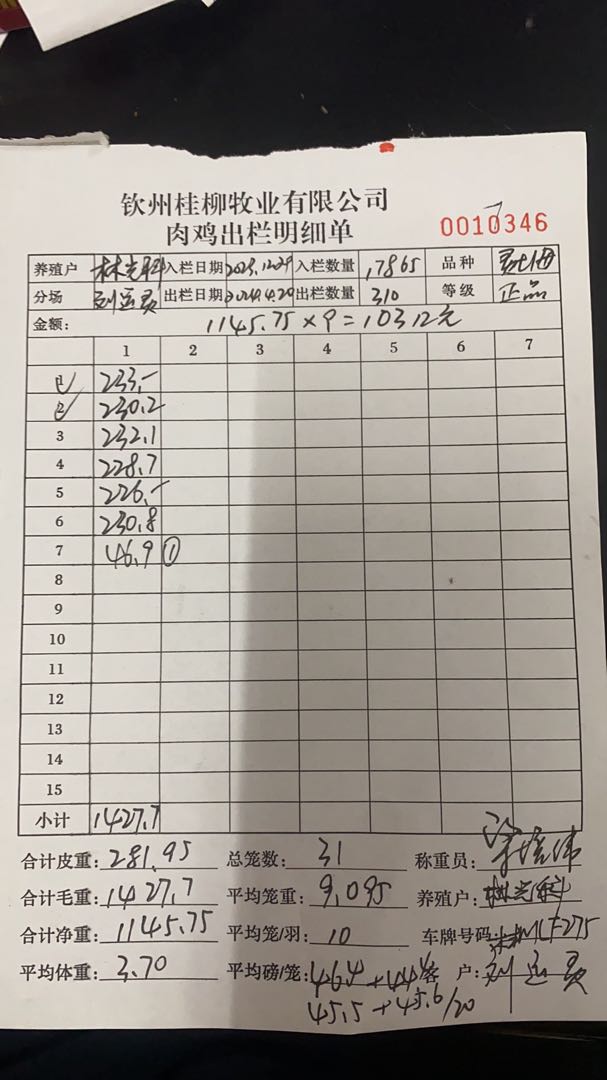 钦州桂柳牧业有限公司
肉鸡出栏明细单
0010346
养殖户 林光科 入栏日期 2023.12.29 入栏数量 17865 品种
分场 刘运 出栏日期 2024.4.20 出栏数量 310 等级 正品
金额: 1145.75×9=10312元
1 2 3 4 5 6 7
233.-
230.2
3 232.1
4 228.7
5 226.-
6 230.8
7 46.9 ①
8
9
10
11
12
13
14
15
小计 1427.7
合计皮重: 281.95 总笼数: 31 称重员:
合计毛重: 1427.7 平均笼重: 9.095 养殖户: 林光科
合计净重: 1145.75 平均笼/羽: 10 车牌号码 MLF275
平均体重: 3.70 平均磅/笼: 46.4+44.4 客户: 刘运
45.5+45.6/20